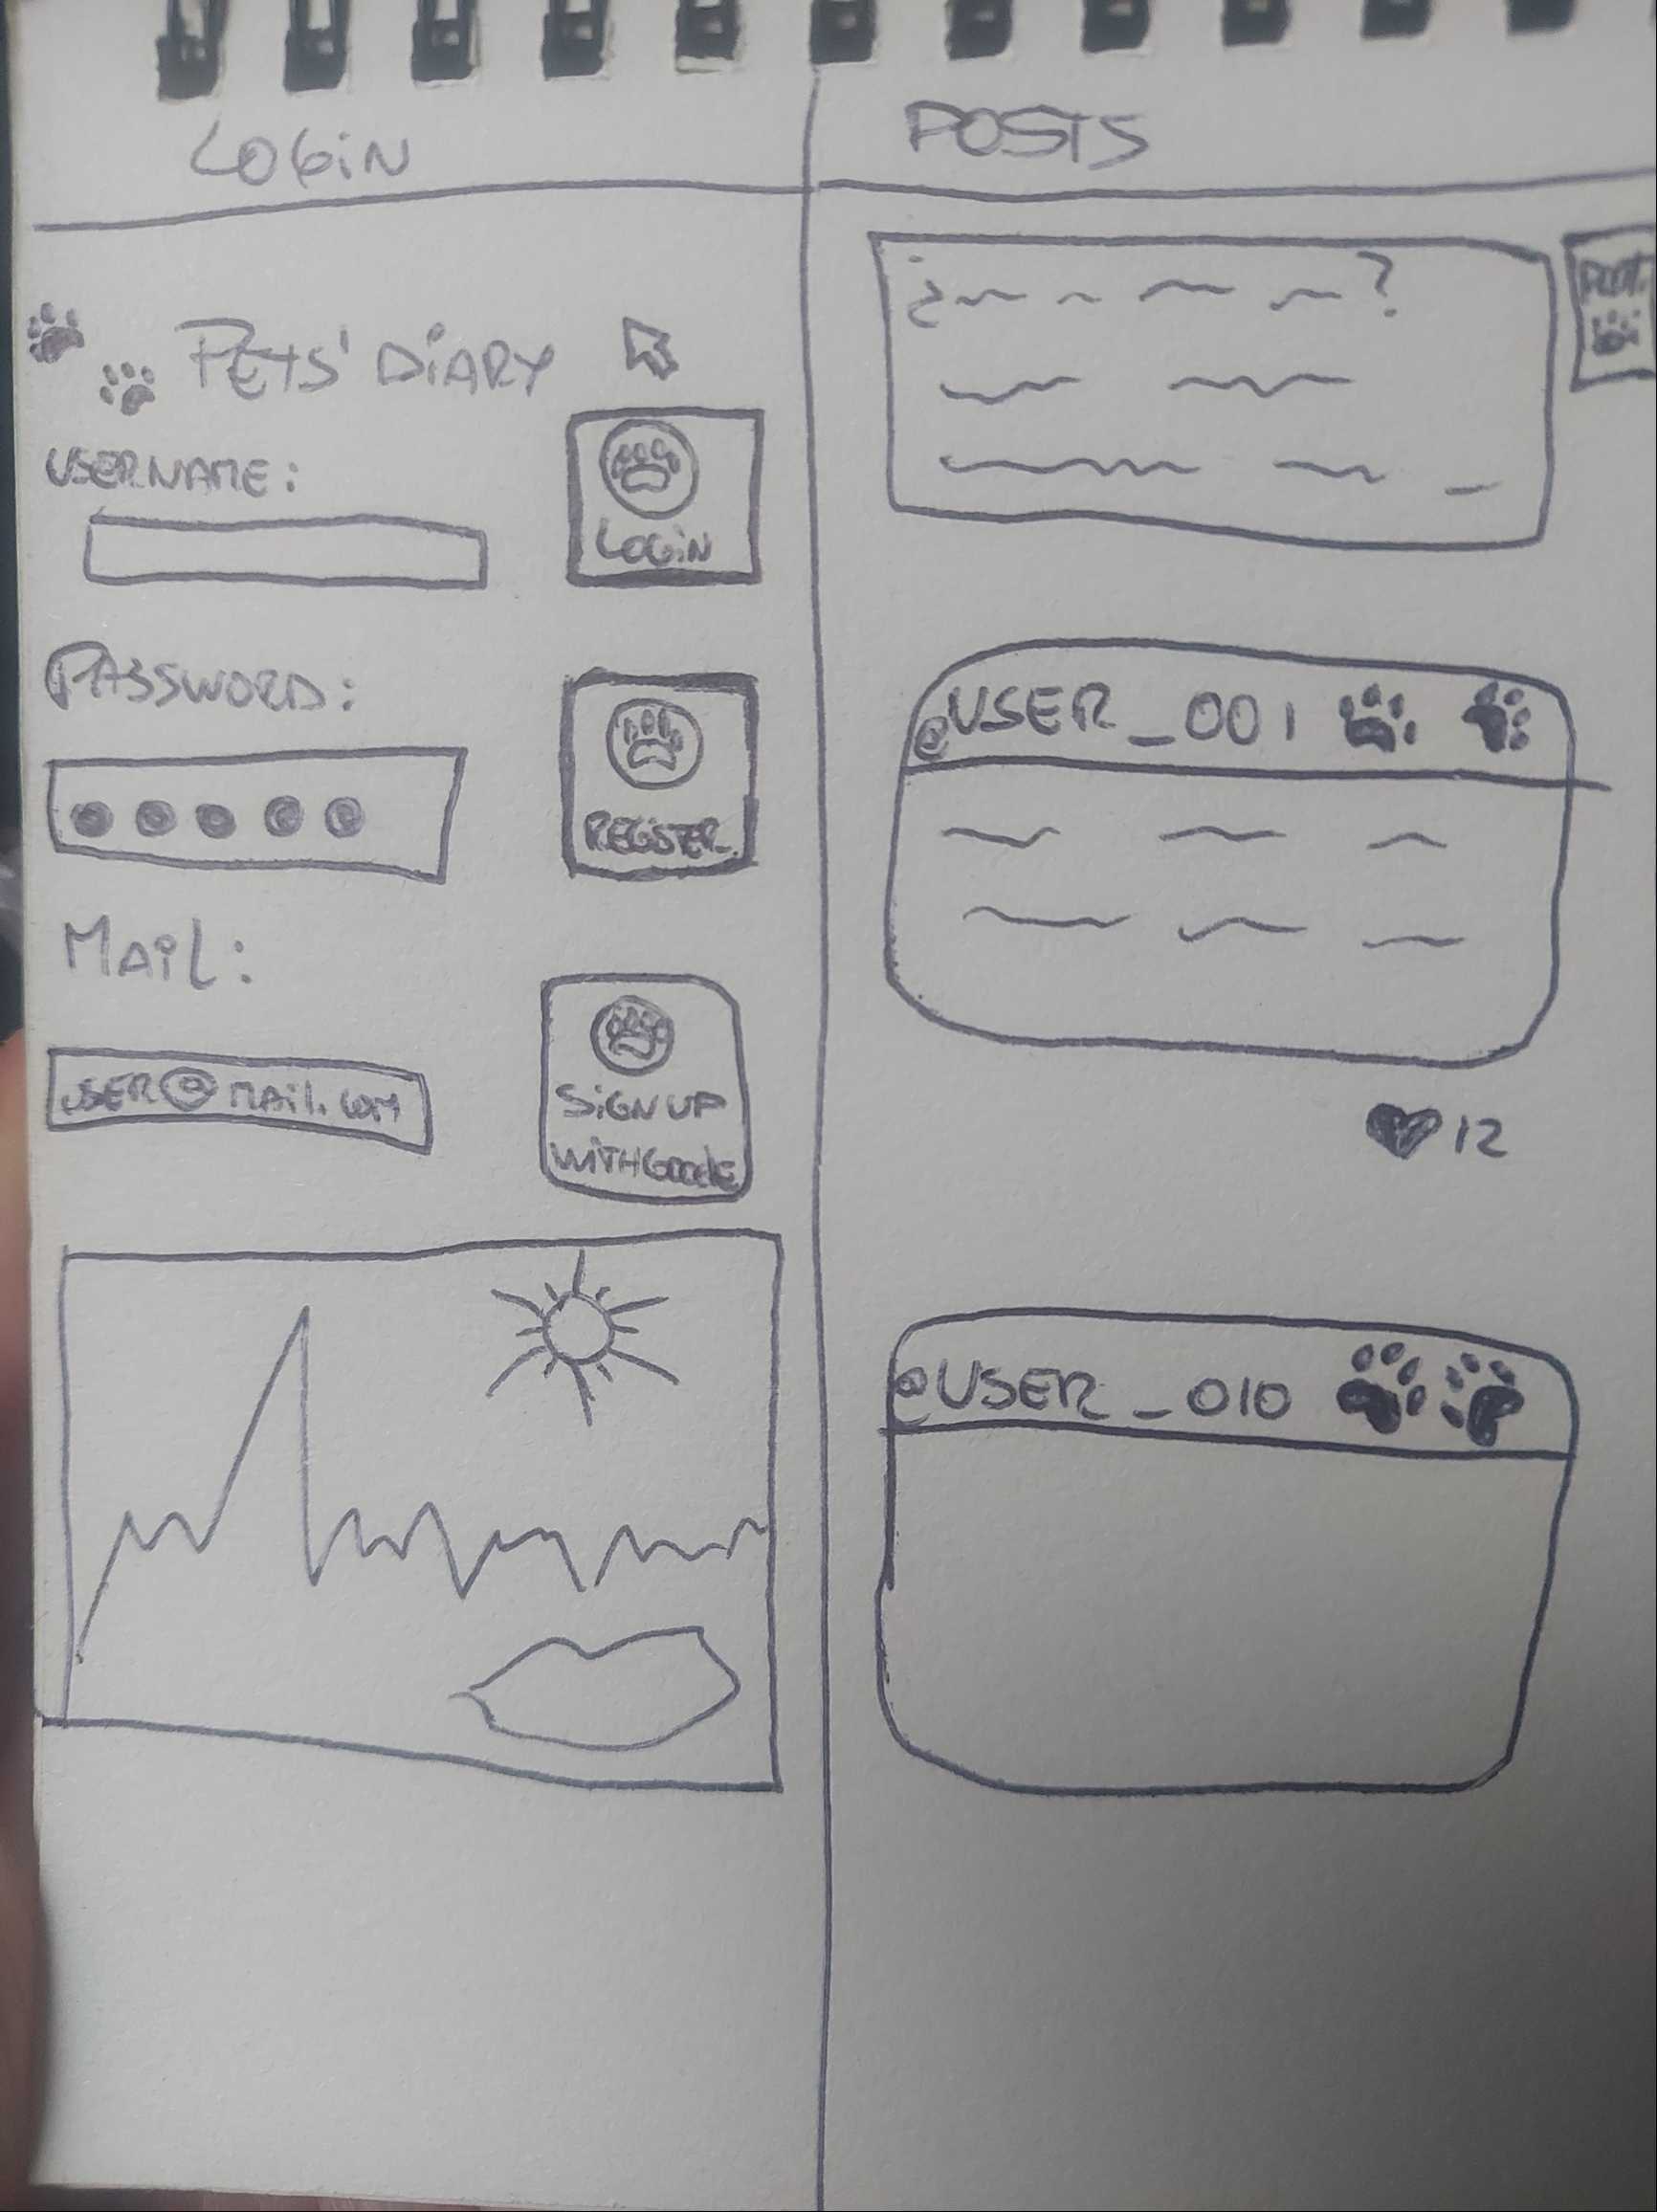 LOGIN
PETS' DIARY
USERNAME:
LOGIN
PASSWORD:
REGISTER
MAIL:
USER@MAIL.COM
SIGN UP
WITH GOOGLE
POSTS
¿ ?
POST
@USER_001
12
@USER_010